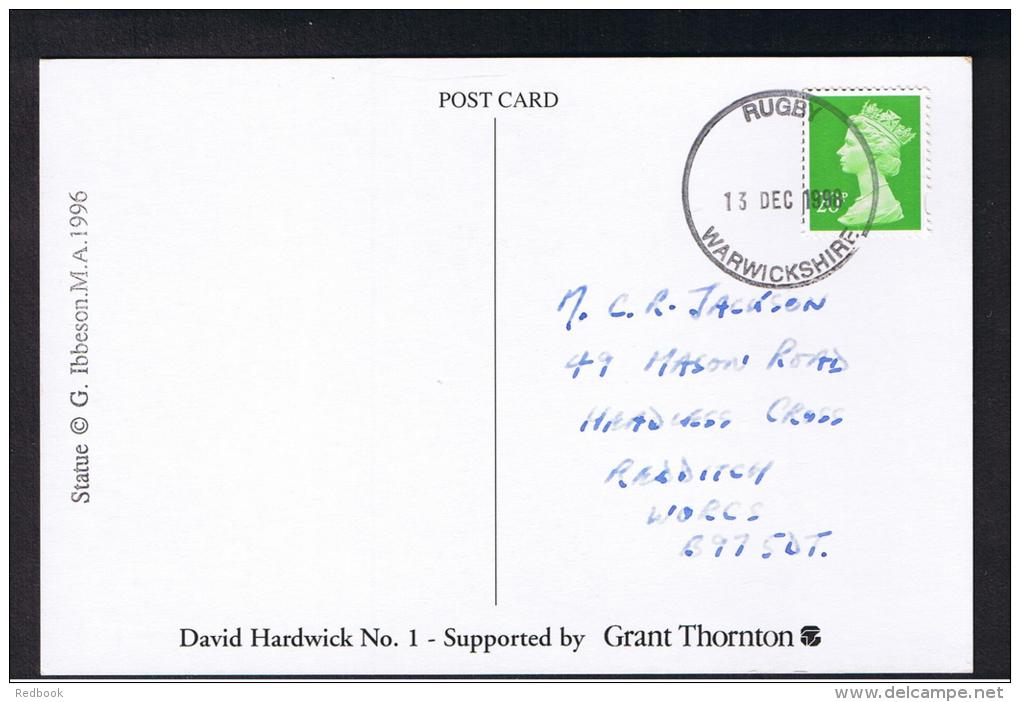 POST CARD
RUGBY
13 DEC 1996
WARWICKSHIRE
20P
Statue © G. Ibbeson.M.A.1996
M. C. R. JACKSON
49 MASON ROAD
HEADLESS CROSS
REDDITCH
WORCS
B97 5DT.
David Hardwick No. 1 - Supported by Grant Thornton
Redbook
www.delcampe.net